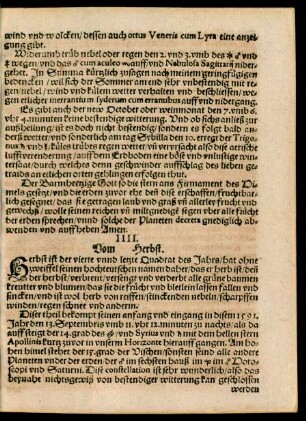 wind vnd wolcken/ dessen auch ortus Veneris cum Lyra eine anzei
gung gibt.
Widerumb trüb nebel oder regen den 2. vnd 3. vnd des ☌ ♂ vnd
wegen vnd das ♂ cum aculeo ♏ auff/ vnd Nabulosa Sagittarij nider-
gehet. In Summa kürtzlich zusagen nach meinem geringfügigen
bedencken/ wil sich der Sommer mit bestendiger witterung/ son-
dern mit nebel/ wind vnd külem wetter verhalten vnd beschliessen/
eben etlicher merantium syderum cum errantibus auff vnd nidergang.
Es gibt auch der new October oder weinmonat den 7. vnd 8.
vhr 4. minuten keine bestendige witterung. Vnd ob sichs anließ zur
auffheiterung/ so ist es doch nicht bestendig sondern es folgt bald an-
derß wetter/ vnd sonderlich am tag Sybilla den 10. erreg der Trigo-
nus vnd külen trübes regen wetter/ vñ verursacht also die aerische
lufft verenderung/ auff dem Erdboden eine böse vnd vnlustige win-
tersaat/ durch welchs dem geschwinder auffschlag des lieben ge-
traids an etlichen orten gehlingen erfolgen thut.
Der Barmhertzige Gott/ so die stern ans firmament des Hi-
mels gesetzt/ vnd die erden zuvor ehr des diese erschaffen/ fruchtbar-
lich gesegnet/ das sie getragen laub vnd graß vñ allerley frucht vnd
gewechß/ wolle seinen reichen vñ miltgnedigẽ segen vber alle früchte
der erden sprechen/ vnnd solche der Planeten decreta gnediglich ab-
wenden vnd auffheben Amen.
IIII.
Vom Herbst.
Herbst ist der vierte vnnd letzte Quadrat des Jahrs/ hat ohne
zweiffel seinen hochteutschen namen daher/ das er herb ist: deñ
der herbst/ verherbt/ verseirigt vnd verderbt alle grüne baumen
kreutter vnd blumen/ das sie die frücht vnd bletlein lassen fallen vnd
sincken/ so ist wol herb von reiffen/ stinckenden nebeln/ scharpffen
winden/ regen schnee vnd andern.
Diser theil bekompt seinen anfang vnd eingang in disem 1591.
Jahr den 13. Septembris vmb 11. vhr 12. minuten zu nachts/ als da
auff steigt der 14. grad des ♋ vnd Syrius vnd mit dem hellen stern
Apollinis kurtz zuvor in vnserm Horizonte hierauff gangen. Am ho-
hen himel stehet der 15. grad der Vischen/ sonsten seind alle andere
Planeten vnder der erden/ der ♂ im sechsten hauß im Horo-
scopi vnd Saturni. Dise constellation ist sehr wunderlich/ also das
beynahe nichts gewiß von bestendiger witterung kan geschlossen
werden